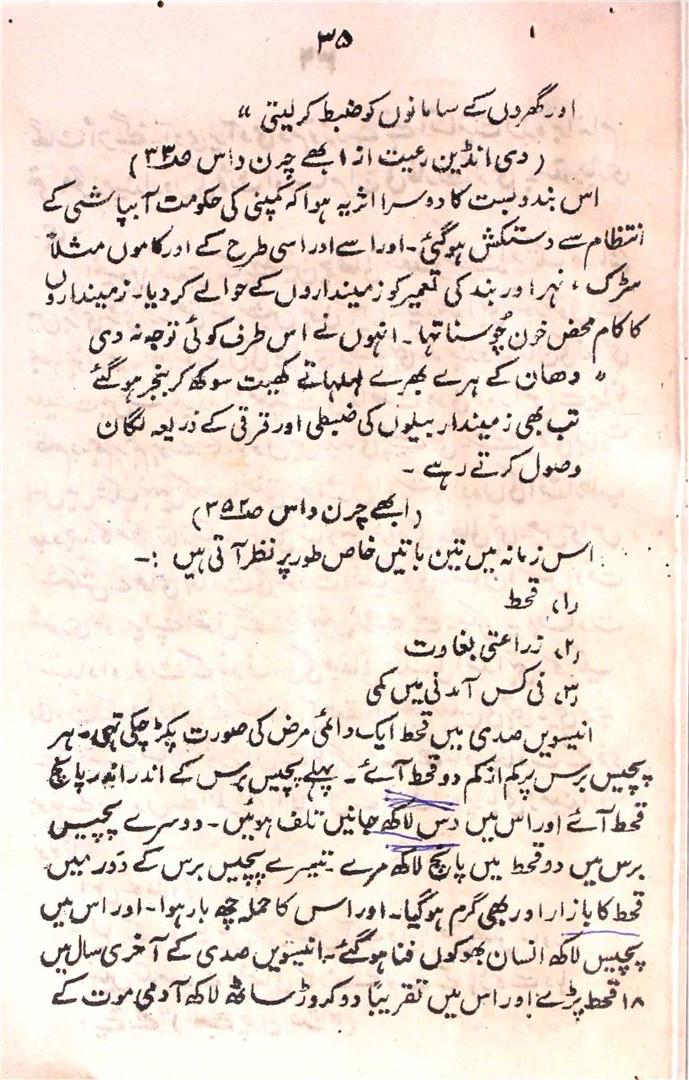 ۳۵
اور گھروں کے سامانوں کو ضبط کر لیتی "
( دی انڈین رعیت از ابھے چرن داس صـ۳۳ )
اس بندوبست کا دوسرا اثر یہ ہوا کہ کمپنی کی حکومت آبپاشی کے
انتظام سے دستکش ہو گئی ۔ اور اسے اور اسی طرح کے اور کاموں مثلاً
سڑک ، نہر اور بند کی تعمیر کو زمینداروں کے حوالے کر دیا ۔ زمینداروں
کا کام محض خون چُوسنا تہا ۔ انہوں نے اس طرف کوئی توجہ نہ دی
" دھان کے ہرے بھرے لہلہاتے کھیت سوکھ کر بنجر ہو گئے
تب بھی زمیندار بیلوں کی ضبطی اور قرقی کے ذریعہ لگان
وصول کرتے رہے ۔
( ابھے چرن داس صـ۳۵۲ )
اس زمانہ میں تین باتیں خاص طور پر نظر آتی ہیں :۔
(۱) قحط
(۲) زراعتی بغاوت
(۳) فی کس آمدنی میں کمی
انیسویں صدی میں قحط ایک دائمی مرض کی صورت پکڑ چکی تہی ۔ ہر
پچیس برس پر کم از کم دو قحط آئے ۔ پہلے پچیس برس کے اندر اندر پانچ
قحط آئے اور اس میں دس لاکھ جانیں تلف ہوئیں ۔ دوسرے پچیس
برس میں دو قحط میں پانچ لاکھ مرے ۔ تیسرے پچیس برس کے دَور میں
قحط کا بازار اور بھی گرم ہو گیا ۔ اور اس کا حملہ چھ بار ہوا ۔ اور اس میں
پچیس لاکھ انسان بھوکوں فنا ہو گئے ۔ انیسویں صدی کے آخری سال میں
۱۸ قحط پڑے اور اس میں تقریباً دو کروڑ ساٹھ لاکھ آدمی موت کے